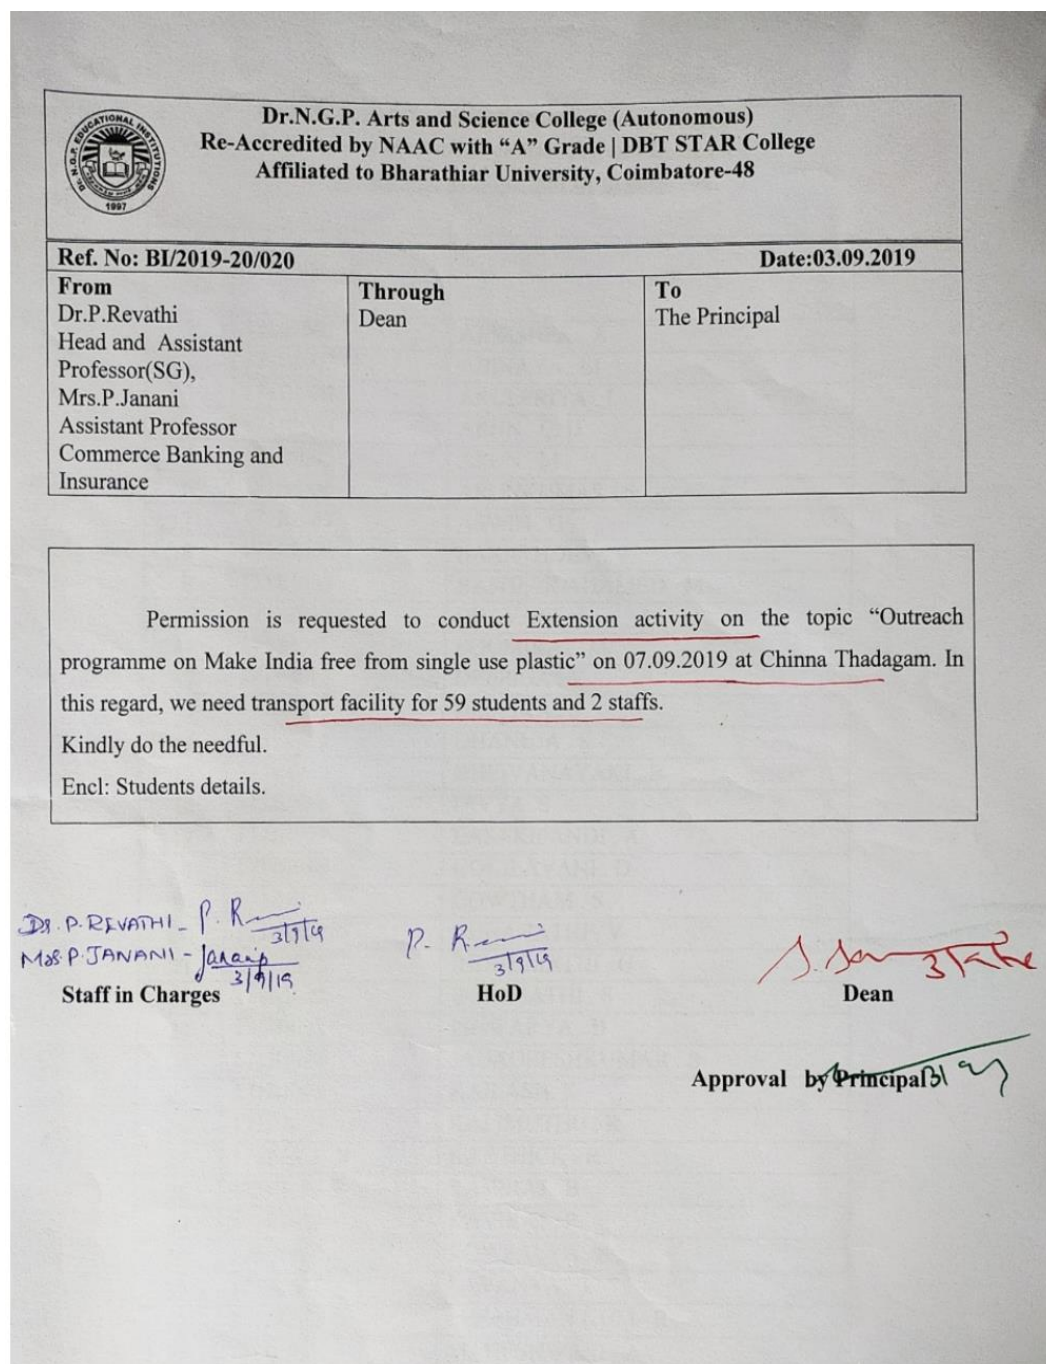 Dr.N.G.P. Arts and Science College (Autonomous)
Re-Accredited by NAAC with “A” Grade | DBT STAR College
Affiliated to Bharathiar University, Coimbatore-48
DR. N.G.P. EDUCATIONAL INSTITUTIONS
1997
Ref. No: BI/2019-20/020 Date:03.09.2019
From
Dr.P.Revathi
Head and Assistant
Professor(SG),
Mrs.P.Janani
Assistant Professor
Commerce Banking and
Insurance
Through
Dean
To
The Principal
Permission is requested to conduct Extension activity on the topic “Outreach
programme on Make India free from single use plastic” on 07.09.2019 at Chinna Thadagam. In
this regard, we need transport facility for 59 students and 2 staffs.
Kindly do the needful.
Encl: Students details.
DR. P. REVATHI - P. R 3/9/19
MRS. P. JANANI - Janani P 3/9/19
Staff in Charges
P. R 3/9/19
HoD
Dean
Approval by Principal